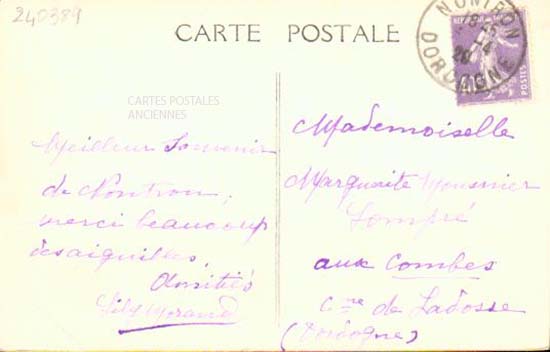 240389
CARTE POSTALE
NONTRON
DORDOGNE
POSTES
CARTES POSTALES
ANCIENNES
Meilleur Souvenir
de Nontron,
merci beaucoup
des aiguilles,
Amitiés
Mademoiselle
Marguerite
aux Combes
Cne de Ladosse
(Dordogne)